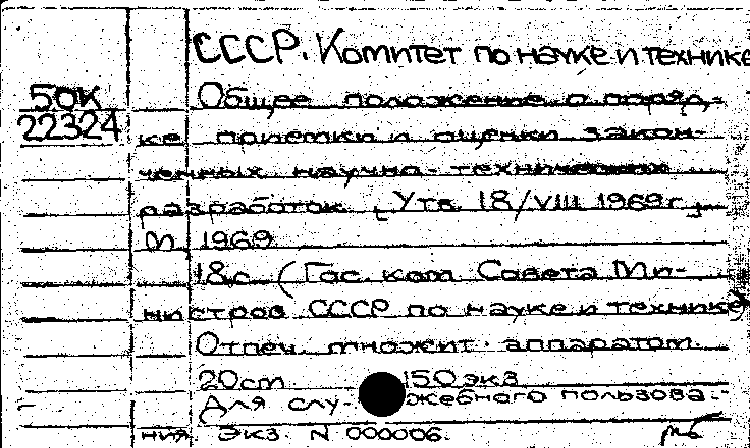 СССР. Комитет по науке и технике
50К
22324
Общее положение о поряд-
ке приемки и оценки закон-
ченных научно-технических
разработок. [Утв. 18/VIII 1969г.]
М 1969
18с. (Гос. ком. Совета Ми-
нистров СССР по науке и технике)
Отпеч. множит. аппаратом.
20см. 150 экз.
Для слу- жебного пользова-
ния. Экз. N 000006.